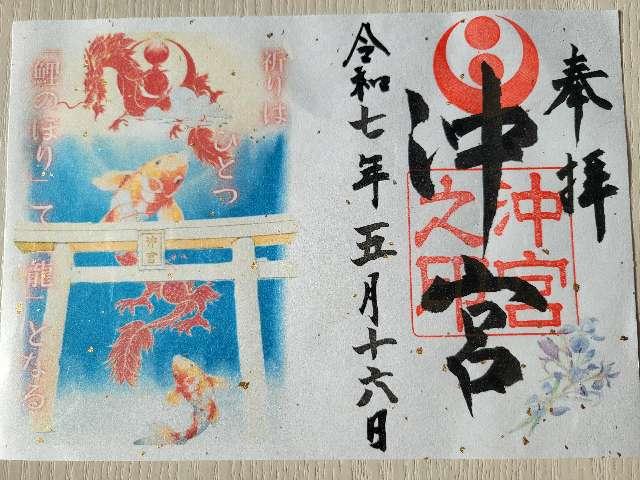 奉拝
沖宮
沖宮
之印
令和七年五月十六日
祈りは
ひとつ
「鯉のぼり」て「龍」となる
沖宮